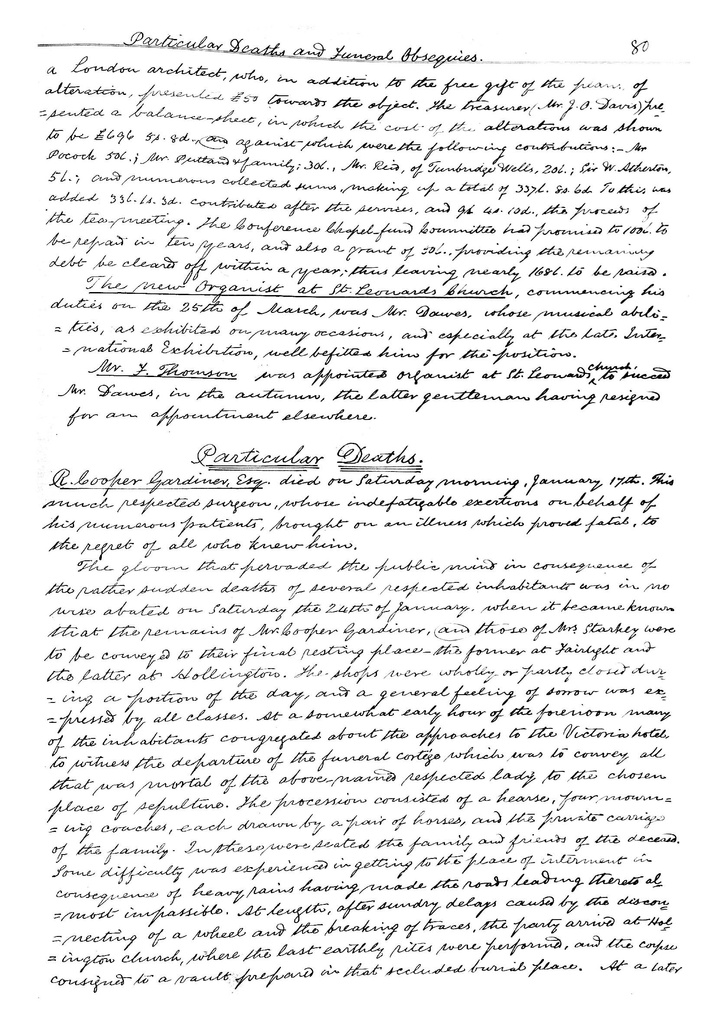 Particular Deaths and Funeral Obsequies. 80
a London architect, who, in addition to the free gift of the plans of
alteration, presented £50 towards the object. The treasurer (Mr. J. O. Davis) pre-
=sented a balance-sheet, in which the cost of the alterations was shown
to be £696 5s. 8d. and against which were the following contributions:- Mr
Pocock 50l.; Mr. Putland & family; 30l., Mr. Reid, of Tunbridge Wells, 20l.; Sir W. Atherton,
5l.; and numerous collected sums, making up a total of 337l. 8s. 6d. To this was
added 33l. 1s. 3d. contributed after the services, and 9l. 4s. 10d., the proceeds of
the tea-meeting. The Conference Chapel-fund Committee had promised to 100l. to
be repaid in ten years, and also a grant of 50l. providing the remaining
debt be cleared off within a year; thus leaving nearly 168l. to be raised.
The new Organist at St. Leonards Church, commencing his
duties on the 25th of March, was Mr. Dawes, whose musical abili-
=ties, as exhibited on many occasions, and especially at the late Inter-
=national Exhibition, well befitted him for the position.
Mr. J. Thomson was appointed organist at St. Leonards church, to succeed
Mr. Dawes, in the autumn, the latter gentleman having resigned
for an appointment elsewhere.
Particular Deaths.
R. Cooper Gardiner, Esq. died on Saturday morning, January 17th. This
much respected surgeon, whose indefatigable exertions on behalf of
his numerous patients, brought on an illness which proved fatal, to
the regret of all who knew him.
The gloom that pervaded the public mind in consequence of
the rather sudden deaths of several respected inhabitants was in no
wise abated on Saturday the 24th of January, when it became known
that the remains of Mr. Cooper Gardiner, and those of Mrs. Starkey were
to be conveyed to their final resting place - the former at Fairlight and
the latter at Hollington. The shops were wholly or partly closed dur-
=ing a portion of the day, and a general feeling of sorrow was ex-
=pressed by all classes. At a somewhat early hour of the forenoon many
of the inhabitants congregated about the approaches to the Victoria hotel,
to witness the departure of the funeral cortege which was to convey all
that was mortal of the above-named respected lady to the chosen
place of sepulture. The procession consisted of a hearse, four mourn-
=ing coaches, each drawn by a pair of horses, and the private carriage
of the family. In these were seated the family and friends of the deceased.
Some difficulty was experienced in getting to the place of interment in
consequence of heavy rains having made the roads leading thereto al-
=most impassible. At length, after sundry delays caused by the discon-
=necting of a wheel and the breaking of traces, the party arrived at Hol-
=ington church, where the last earthly rites were performed, and the corpse
consigned to a vault prepared in that secluded burial place. At a later